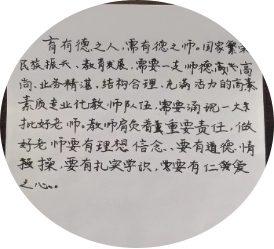 育有德之人,需有德之师。国家繁荣
民族振兴、教育发展,需要一支师德高尚
尚、业务精湛、结构合理、充满活力的高素
素质专业化教师队伍,需要涌现一大
批好老师。教师肩负着重要责任,做
好老师要有理想信念、要有道德情
操,要有扎实学识,要有仁爱
之心。